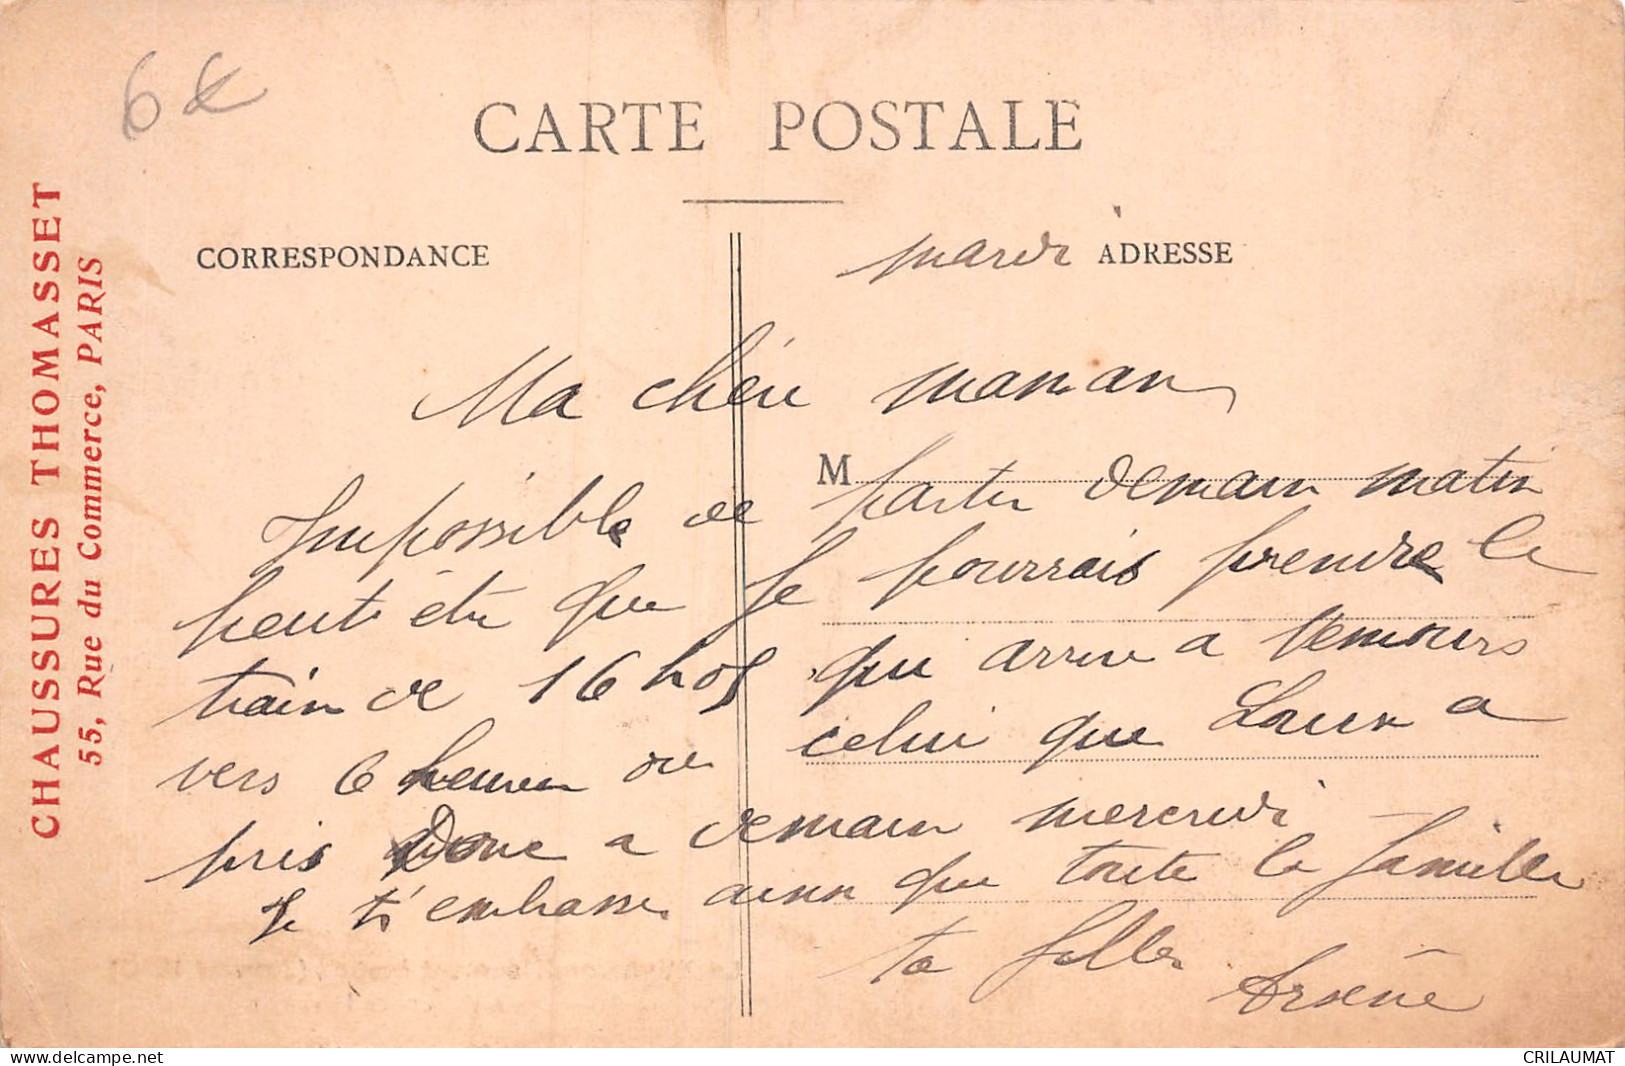 6€
CARTE POSTALE
CHAUSSURES THOMASSET
55, Rue du Commerce, PARIS
CORRESPONDANCE
mardi ADRESSE
Ma chère maman
M
Impossible de partir demain matin
peut être que je pourrais prendre le
train de 16 h 05 qui arrive a Nemours
vers 6 heures ou celui que Laura a
pris Donc a demain mercredi
Je t'embrasse ainsi que toute la famille
ta fille
Arsène
delcampe.net
CRILAUMAT